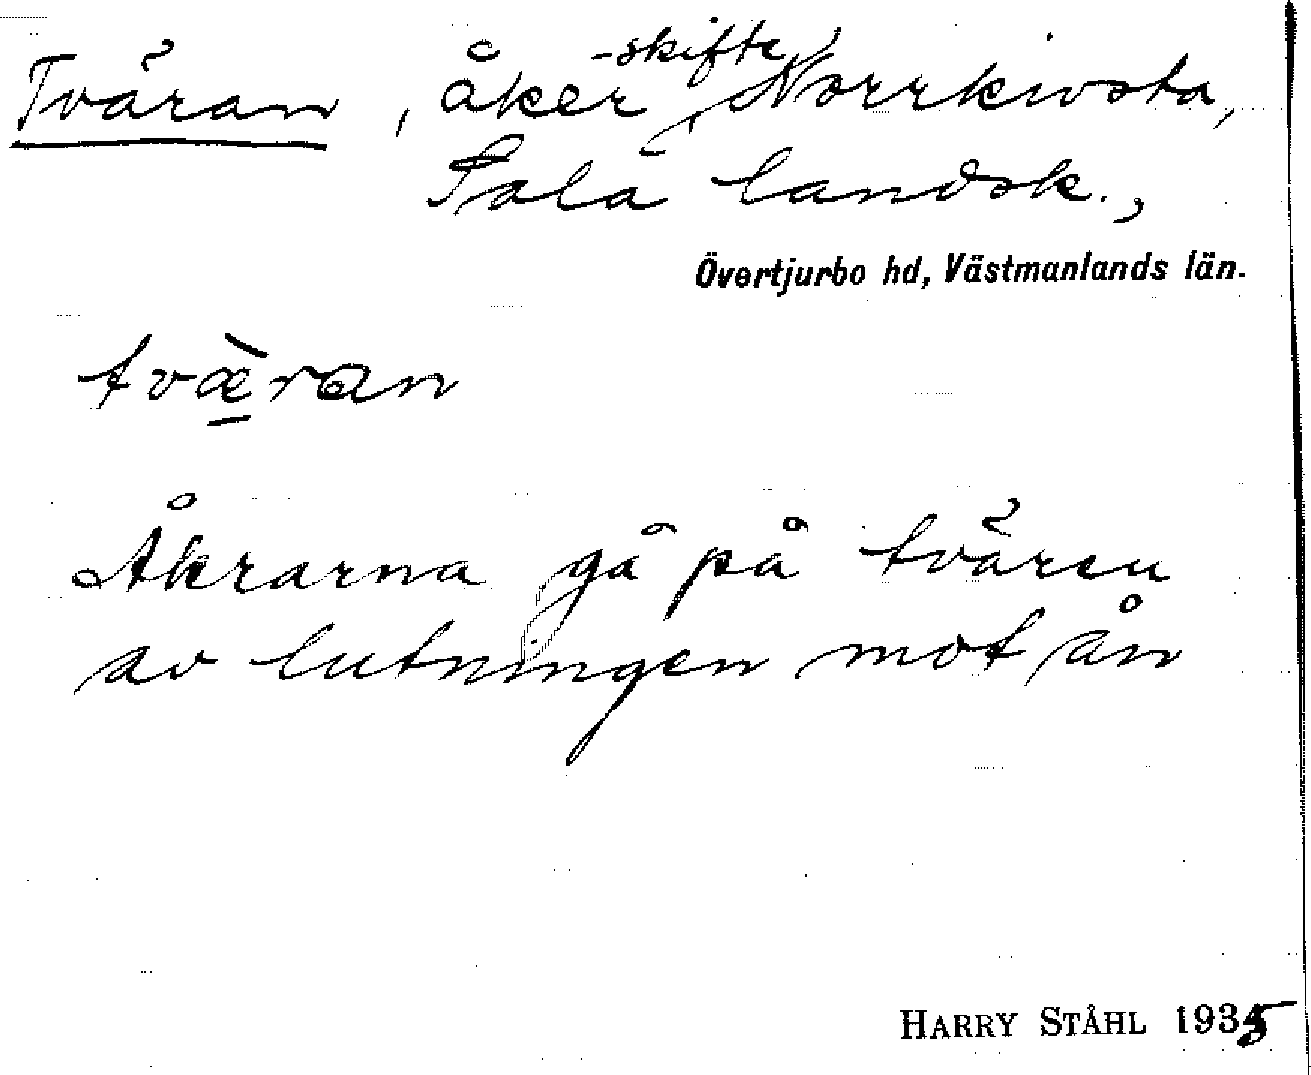 Tväran, åker-skifte, Norrkivsta,
Sala landsk.,
Övertjurbo hd, Västmanlands län.
tvæ̠̀ran
Åkrarna gå på tvären
av lutningen mot ån
HARRY STÅHL 1935